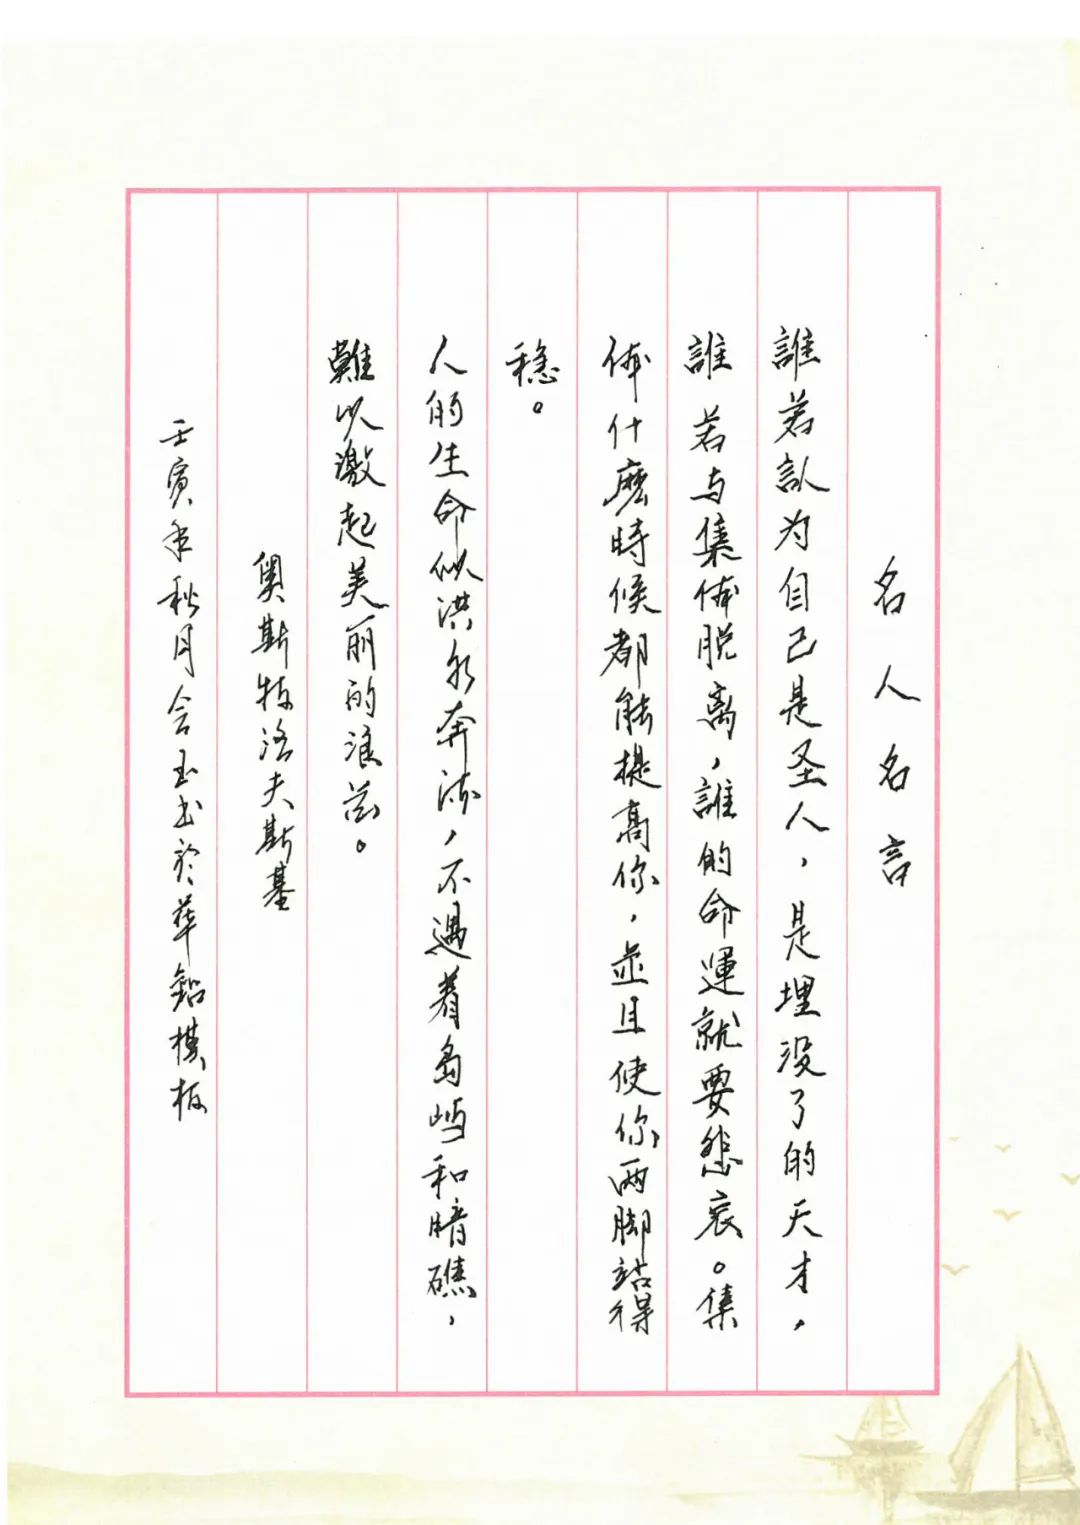 名人名言
誰若認为自己是圣人，是埋没了的天才，
誰若与集体脱离，誰的命運就要悲哀。集
体什麽時候都能提高你，並且使你两脚站得
稳。
人的生命似洪水奔流，不遇着岛屿和暗礁，
難以激起美丽的浪花。
奥斯特洛夫斯基
壬寅年秋月会玉书於華鋁模板